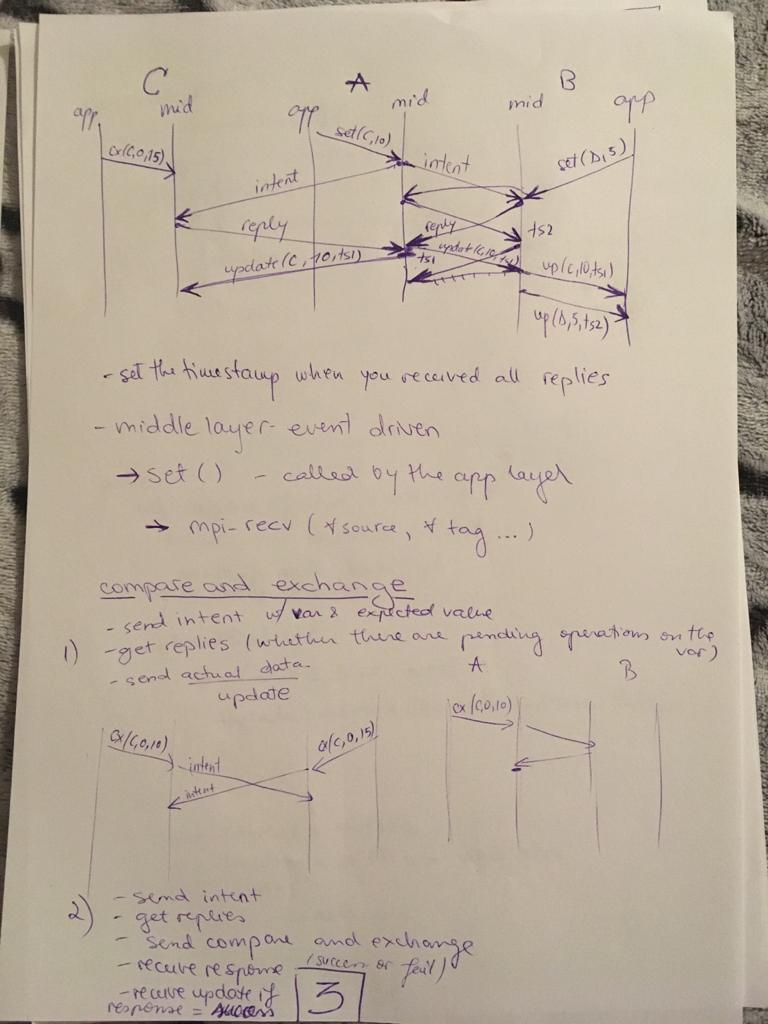 C A B
app mid app mid mid app
cx(C,0,15) set(C,10) intent set(D,5)
intent
reply reply ts2
update(C,10,ts1) ts1 update(C,10,ts1) up(C,10,ts1)
up(D,5,ts2)
- set the timestamp when you received all replies
- middle layer - event driven
→ set() - called by the app layer
→ mpi-recv (∀source, ∀ tag ...)
compare and exchange
- send intent w/ var & expected value
1) - get replies (whether there are pending operations on the var)
- send actual data
update
A B
cx(C,0,10) cx(C,0,15) cx(C,0,10)
intent
intent
2) - send intent
- get replies
- send compare and exchange
- receive response (success or fail)
- receive update if
response = success
3